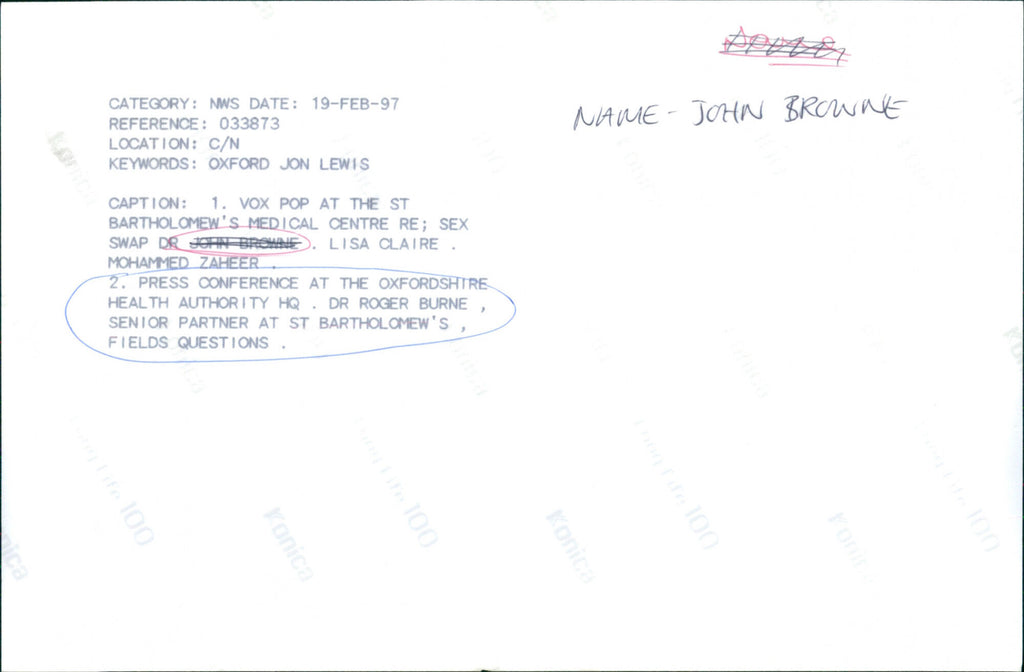 CATEGORY: NWS DATE: 19-FEB-97
REFERENCE: 033873
LOCATION: C/N
KEYWORDS: OXFORD JON LEWIS
NAME - JOHN BROWNE
CAPTION: 1. VOX POP AT THE ST
BARTHOLOMEW'S MEDICAL CENTRE RE; SEX
SWAP DR JOHN BROWNE . LISA CLAIRE .
MOHAMMED ZAHEER .
2. PRESS CONFERENCE AT THE OXFORDSHIRE
HEALTH AUTHORITY HQ . DR ROGER BURNE ,
SENIOR PARTNER AT ST BARTHOLOMEW'S ,
FIELDS QUESTIONS .
Konica
Long Life 100
Long Life 100
Long Life 100
Konica
Konica
Konica